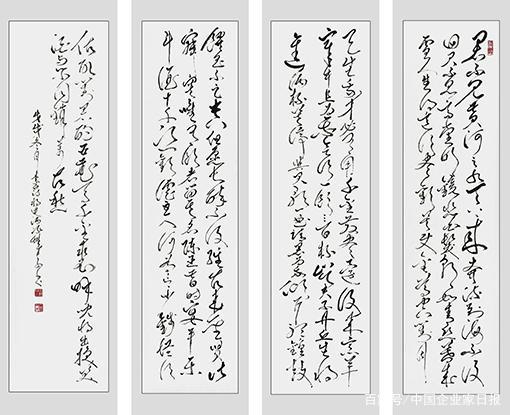 君不见黄河之水天上来奔流到海不复
回君不见高堂明镜悲白发朝如青丝暮成
雪人生得意须尽欢莫使金樽空对月
天生我材必有用千金散尽还复来烹羊
宰牛且为乐会须一饮三百杯岑夫子丹丘生将
进酒杯莫停与君歌一曲请君为我倾耳听钟鼓
馔玉不足贵但愿长醉不复醒古来圣贤皆
寂寞唯有饮者留其名陈王昔时宴平乐
斗酒十千恣欢谑主人何为言少钱径须
沽取对君酌五花马千金裘呼儿将出换美
酒与尔同销万古愁
百家号/中国企业家日报